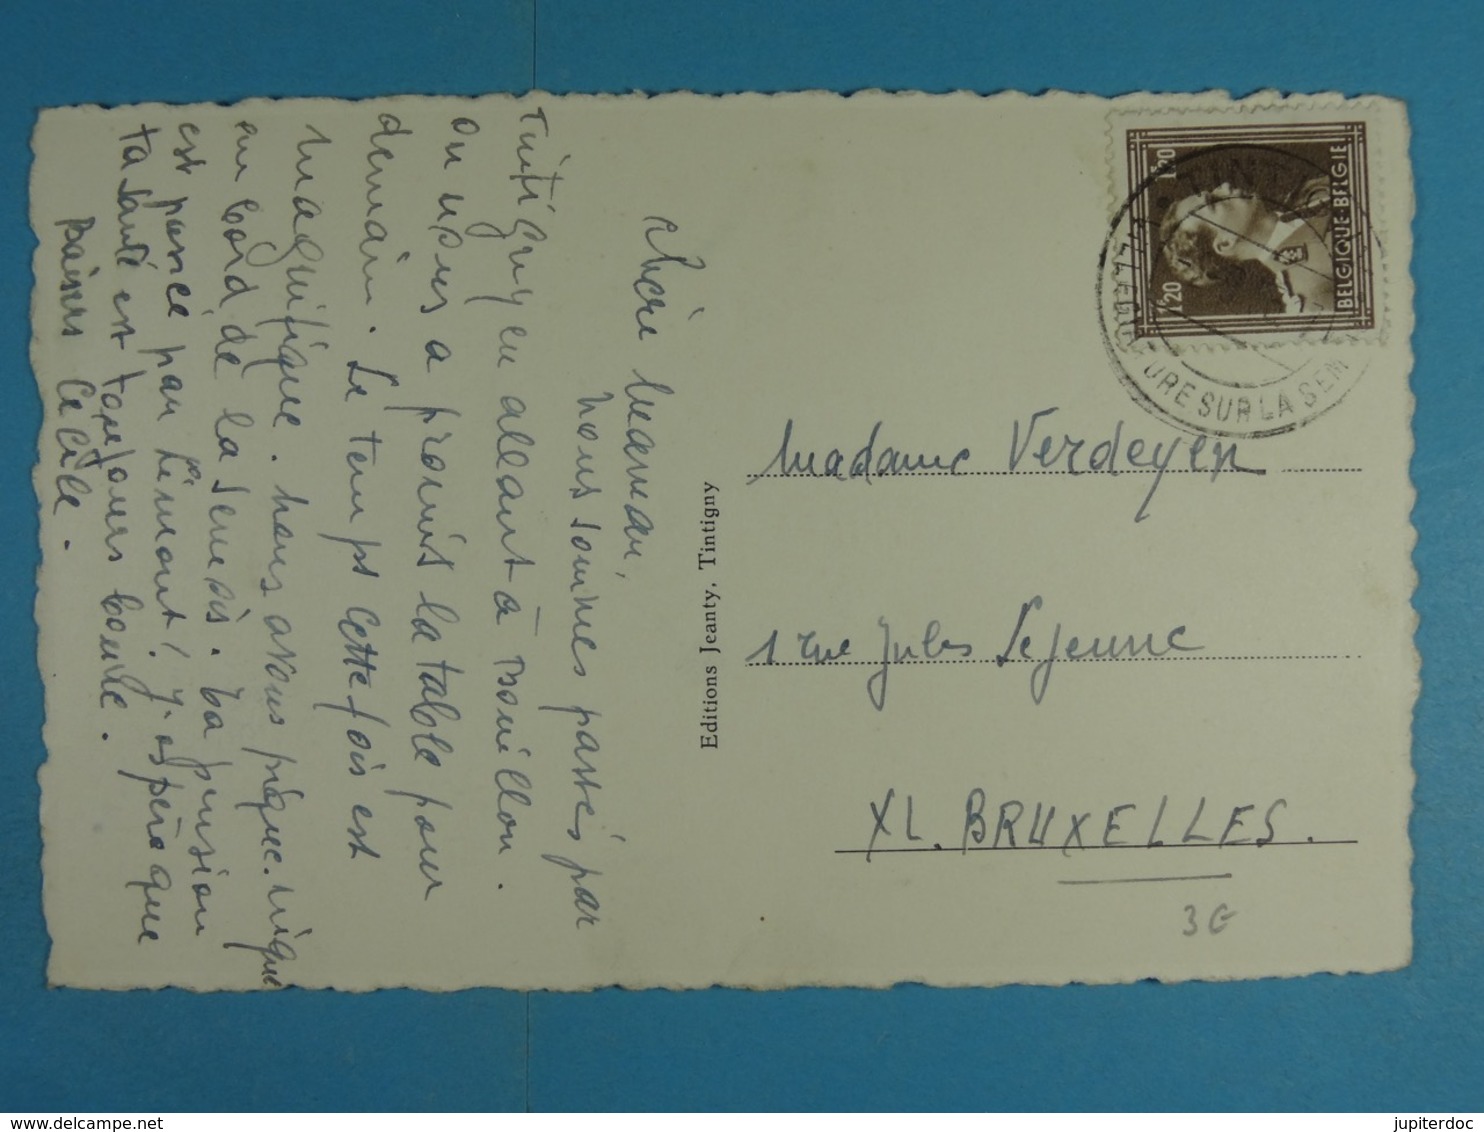 Chère Maman,
nous sommes passés par
Tintigny en allant à Bouillon.
on nous a promis la table pour
demain. Le temps cette fois est
magnifique. nous avons pique-niqué
au bord de la Semois. ta pension
est passée par Limont! J'espère que
ta santé est toujours bonne.
Baisers Cécile.
Editions Jeanty, Tintigny
BELGIQUE-BELGIE
1.20
1.20
TINT
URE SUR LA SEM
Madame Verdeyen
1 rue Jules Lejeune
XL. BRUXELLES.
3 G
jupiterdoc